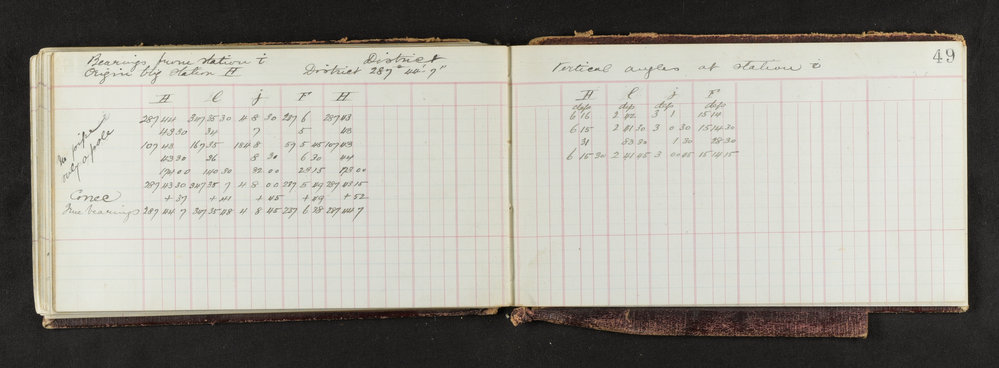 Bearings from station i District
Origin big station H District 287° 44' 7"
H l j F H
287 44 347 35 30 4 8 30 237 6 287 43
43 30 34 7 5 43
107 43 167 35 184 8 57 5 45 107 43
43 30 36 8 30 6 30 44
174 00 140 30 32 00 23 15 173 00
287 43 30 347 35 7 4 8 00 237 5 49 287 43 15
Correc + 37 + 41 + 45 + 49 + 52
True bearings 287 44 7 347 35 48 4 8 45 237 6 38 287 44 7
no pipe
only a pole
49
Vertical angles at station i
H l j F
dep dep dep
6 16 2 42 3 1 15 14
6 15 2 41 30 3 0 30 15 14 30
31 83 30 1 30 28 30
6 15 30 2 41 45 3 00 45 15 14 15